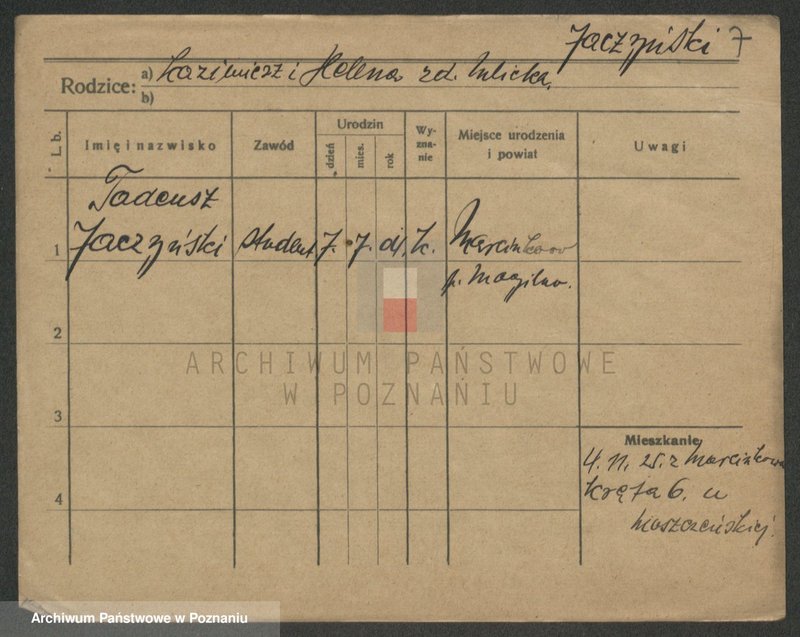 Jaczyński 7
Rodzice:
a) Kazimierz i Helena zd.
b)
L. b.
Imię i nazwisko
Zawód
Urodzin
dzień
mies.
rok
Wy-
zna-
nie
Miejsce urodzenia
i powiat
Uwagi
1
Tadeusz
Jaczyński
student
7.
7.
k.
Marcinkowo
p. Mogilno.
2
3
4
Mieszkanie
4. 11. 25. z Marcinkowa
Kręta 6. u
ARCHIWUM PAŃSTWOWE
W POZNANIU
Archiwum Państwowe w Poznaniu